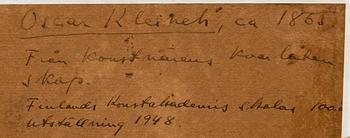 Oscar Kleineh, ca 1865.
Från konstnärens kvarlåten
skap.
Finlands Konstakademis skolas 100 års
utställning 1948